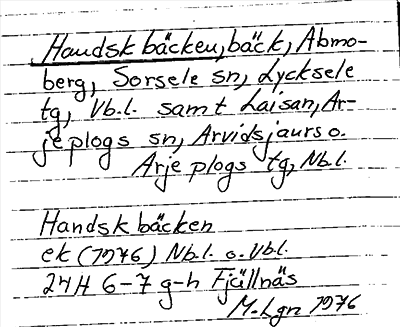 Handskbäcken, bäck, Abmo-
berg, Sorsele sn, Lycksele
tg, Vb.l. samt Laisan, Ar-
jeplogs sn, Arvidsjaurs o.
Arjeplogs tg, Nb.l.
Handskbäcken
ek (1976) Nb.l. o. Vbl.
24H 6-7 g-h Fjällnäs
M. Lgn 1976